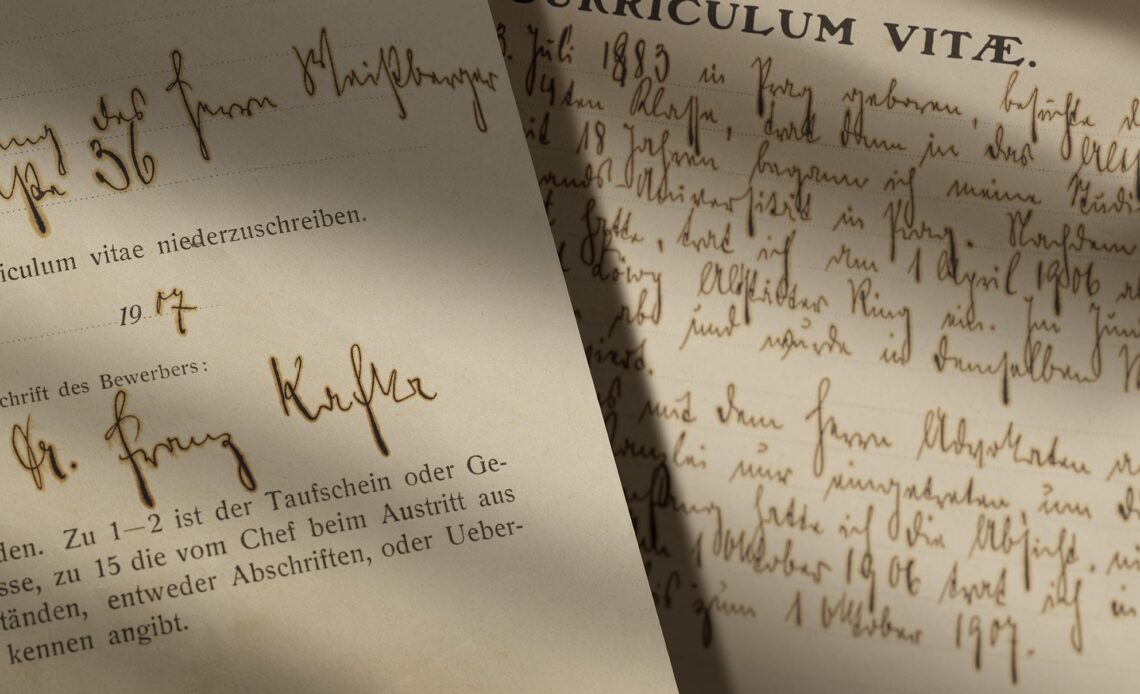 ung des Herrn Weißberger
36
iculum vitae niederzuschreiben.
19 07
schrift des Bewerbers:
Dr. Franz Kafka
den. Zu 1—2 ist der Taufschein oder Ge-
sse, zu 15 die vom Chef beim Austritt aus
tänden, entweder Abschriften, oder Ueber-
kennen angibt.
CURRICULUM VITÆ.
3. Juli 1883 in Prag geboren, besuchte d
4ten Klasse, trat dann in das
it 18 Jahren begann ich meine Studi
nands-Universität in Prag. Nachdem
hatte, trat ich am 1 April 1906
Löwy Altstädter Ring ein. Im Juni
und wurde in demselben
viert.
mit dem Herrn Advokaten
Kanzlei nur eingetreten, um d
hatte ich die Absicht,
1 Oktober 1906 trat ich in
bis zum 1 Oktober 1907.